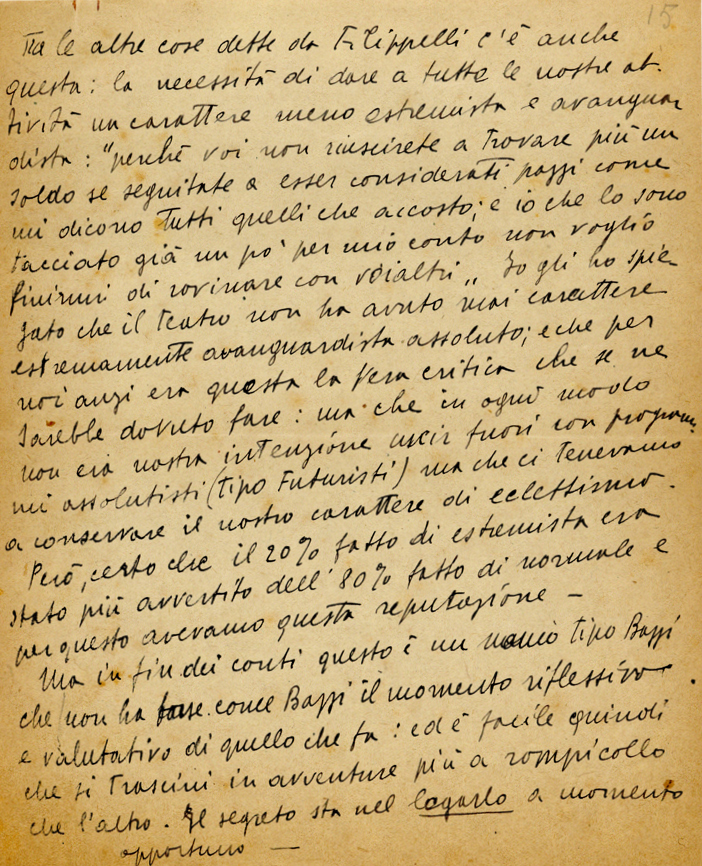 15
Tra le altre cose dette da Filippelli c'è anche
questa: la necessità di dare a tutte le nostre at-
tività un carattere meno estremista e avanguar
dista: "perchè voi non riuscirete a trovare più un
soldo se seguitate a esser considerati pazzi come
mi dicono tutti quelli che accosto; e io che lo sono
tacciato già un po' per mio conto non voglio
finirmi di rovinare con voialtri„ Io gli ho spie-
gato che il Teatro non ha avuto mai carattere
estremamente avanguardista assoluto; e che per
noi anzi era questa la vera critica che se ne
sarebbe dovuto fare: ma che in ogni modo
non era nostra intenzione uscir fuori con program
mi assolutisti (tipo Futuristi) ma che ci tenevamo
a conservare il nostro carattere di eclettismo.
Però, certo che il 20% fatto di estremista era
stato più avvertito dell' 80% fatto di normale e
per questo avevamo questa reputazione —
Ma in fin dei conti questo è un tipo Bazzi
che non ha forse come Bazzi il momento riflessivo
e valutativo di quello che fa: ed è facile quindi
che si trascini in avventure più a rompicollo
che l'altro. Il segreto sta nel legarlo a momento
opportuno —